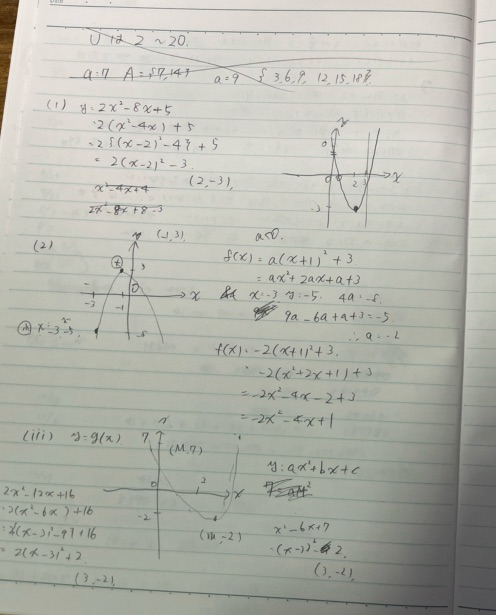 Uは2~20.
a=7 A={7,14} a=9 {3,6,9, 12,15,18}
(1) y=2x²-8x+5
2(x²-4x)+5
=2{(x-2)²-4}+5
= 2(x-2)²-3
(2,-3)
x²-4x+4
2x²-8x+8-3
y
0
x
2 3
-3
(2)
(-1,3)
y
3
0
x
-3
-1
-5
x=-3
a<0.
f(x)=a(x+1)²+3
=ax²+2ax+a+3
x=-3 y=-5. 4a=-8
9a-6a+a+3=-5
∴a=-2
f(x)=-2(x+1)²+3.
-2(x²+2x+1)+3
=-2x²-4x-2+3
=-2x²-4x+1
(iii) y=g(x)
7
(M,7)
0
2
x
-2
(m,-2)
2x²-12x+16
2(x²-6x)+16
{(x-3)²-9}+16
2(x-3)²+2
(3,-2)
y=ax²+bx+c
x²-6x+7
(x-3)²-2
(3,-2)